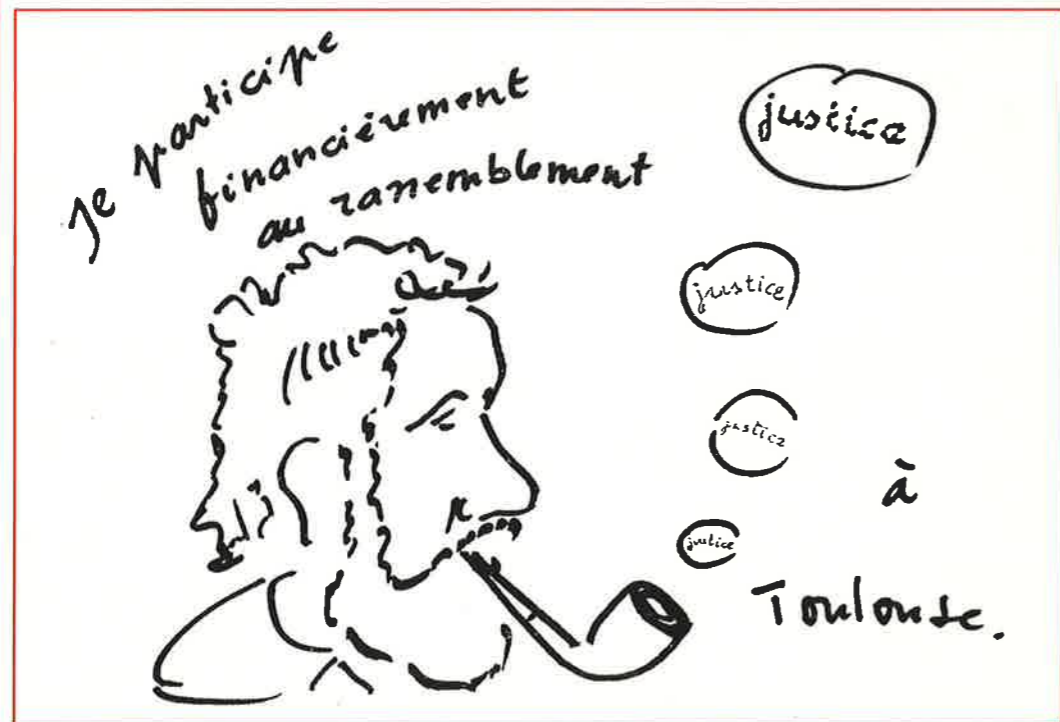 je participe
financièrement
au rassemblement
justice
justice
justice
justice
à
Toulouse.